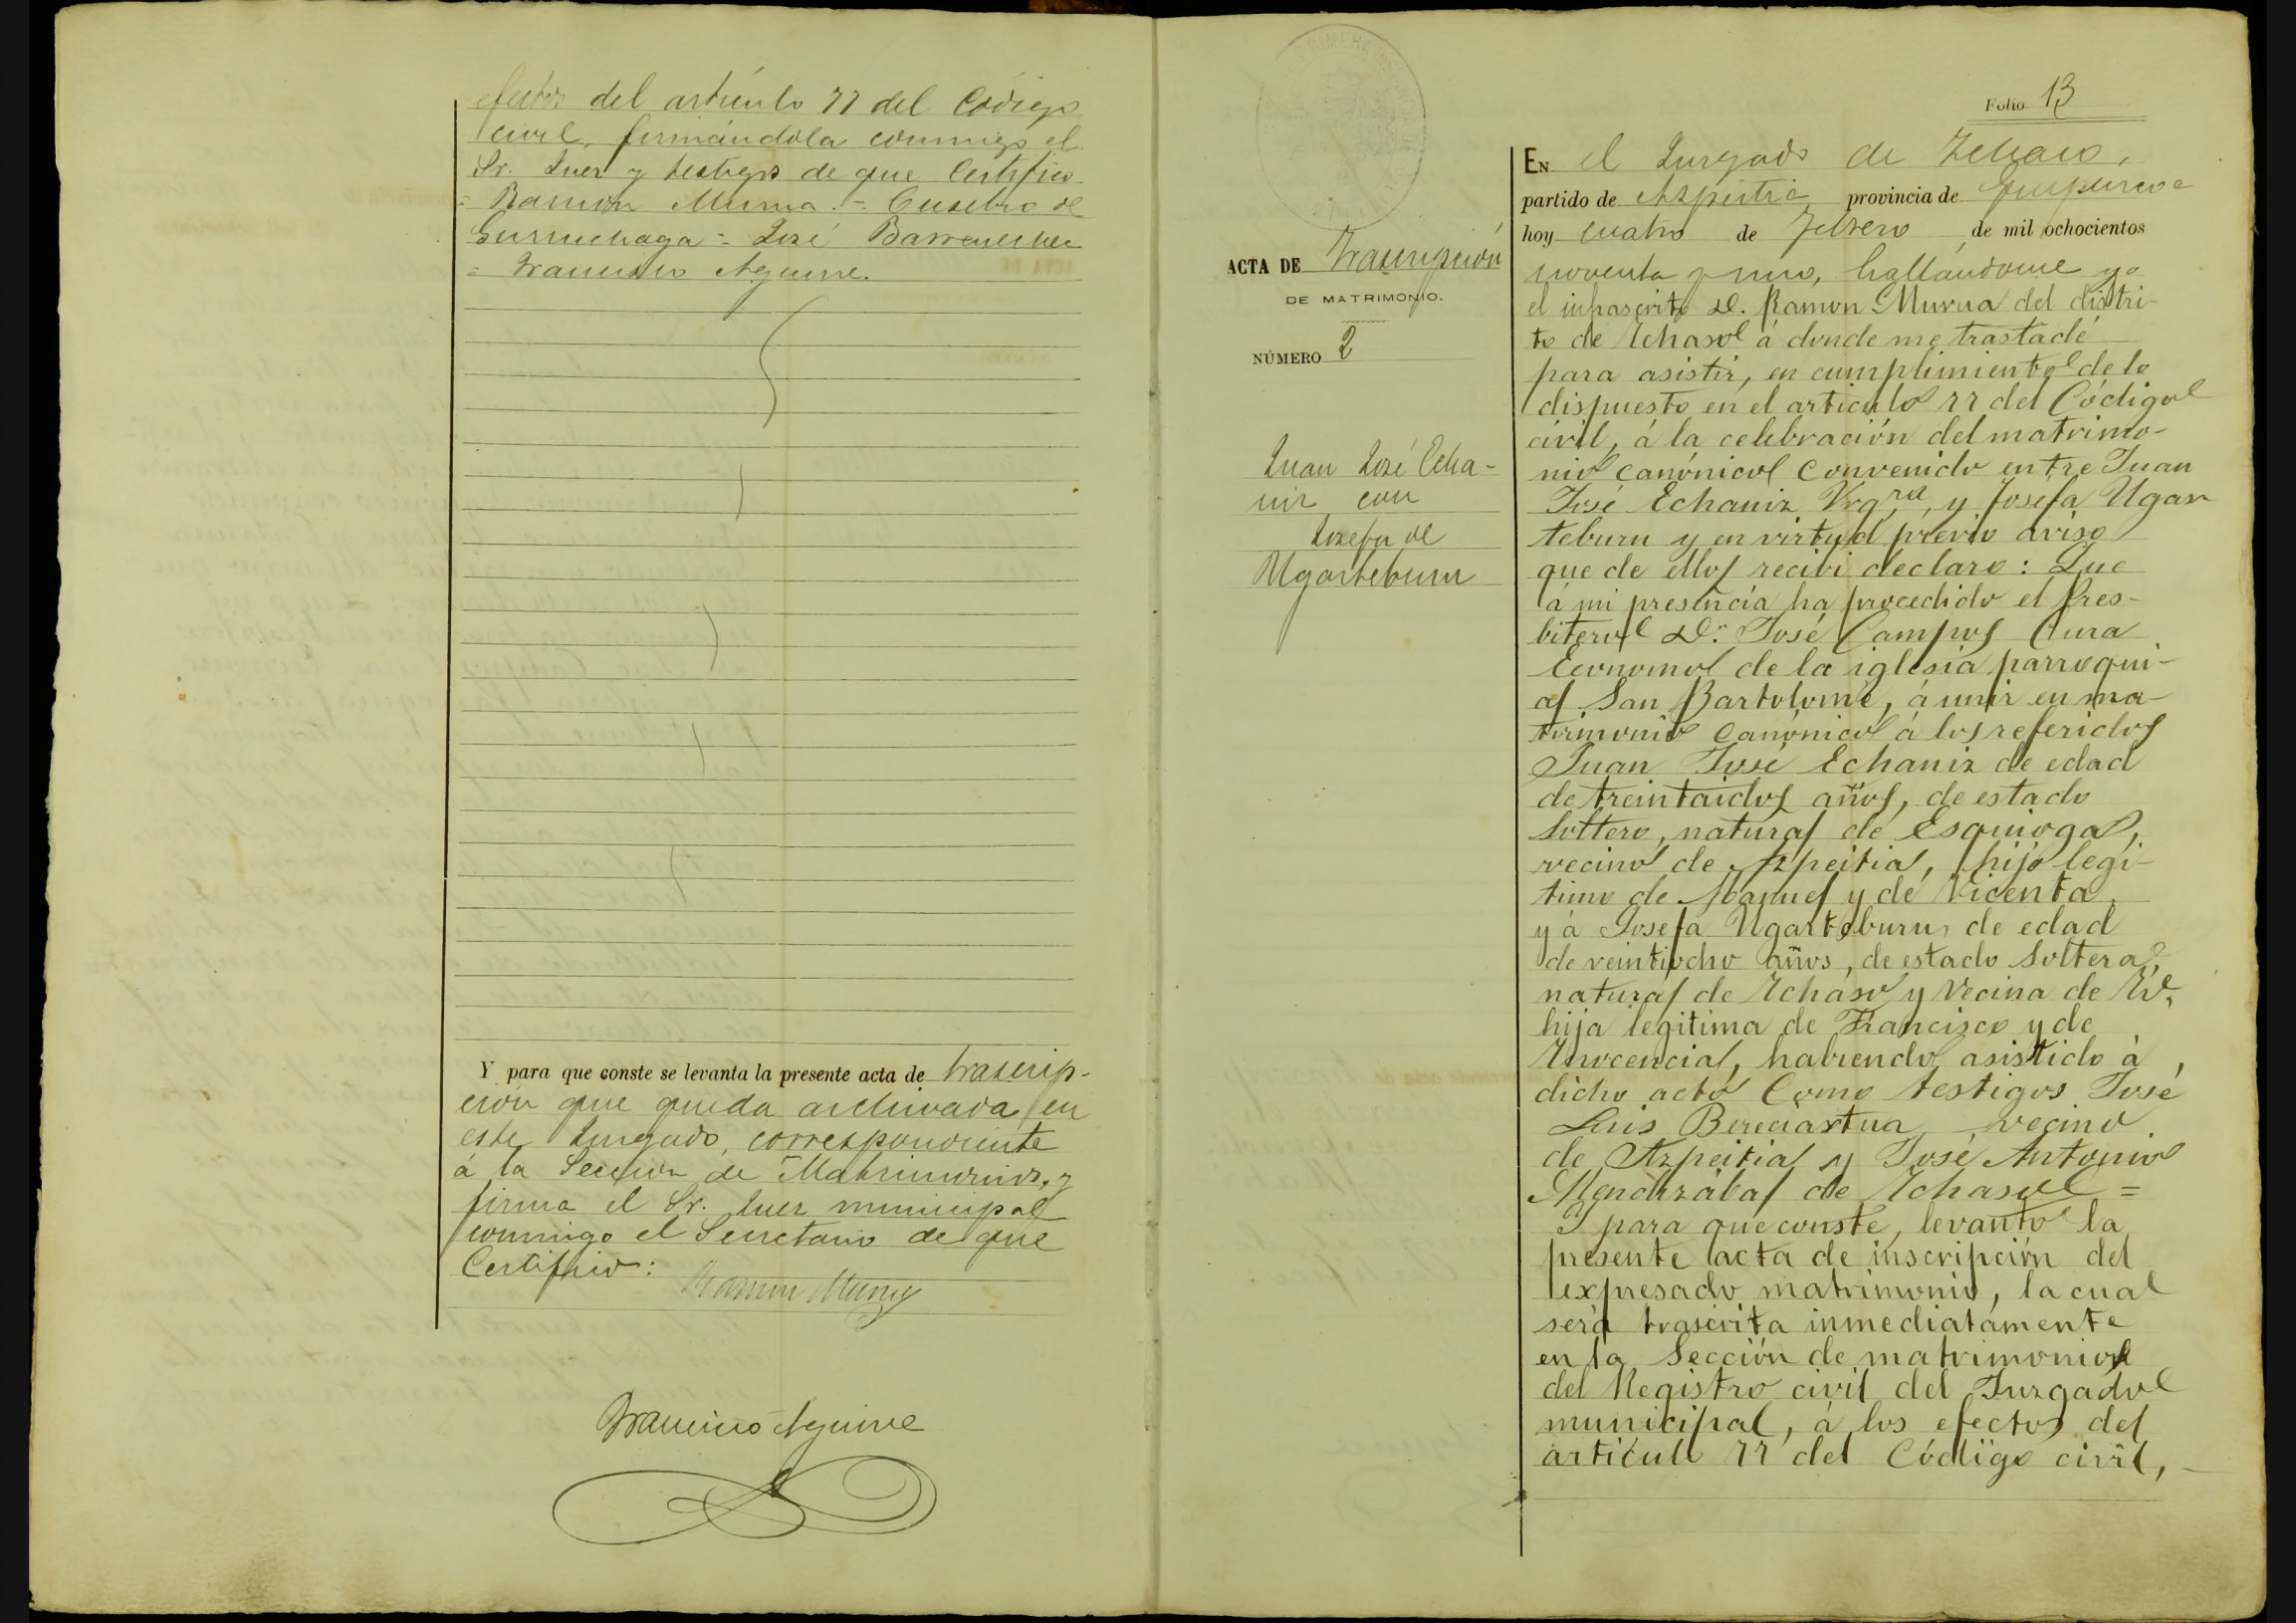 efectos del artículo 77 del Código
civil, firmándola conmigo el
Sr. Juez y testigos de que Certifico
= Ramon Murua. = Eusebio de
Gurruchaga = José Barrenechea
= Francisco Aguirre.
Y para que conste se levanta la presente acta de trascrip-
ción que queda archivada en
este Juzgado, correspondiente
á la Sección de Matrimonios, y
firma el Sr. Juez municipal
conmigo el Secretario de que
Certifico:
Ramon Murua
Francisco Aguirre
ACTA DE Trascripción
DE MATRIMONIO.
NÚMERO 2
Juan José Echa-
niz con
Josefa de
Ugarteburu
Folio 13
EN el Juzgado de Ichaso,
partido de Azpeitia provincia de Guipuzcoa
hoy cuatro de Febrero de mil ochocientos
noventa y uno, hallándome yo
el infrascrito D. Ramon Murua del distri-
to de Ichaso á donde me trastadé
para asistir, en cumplimiento de lo
dispuesto en el articulo 77 del Código
civil, á la celebración del matrimo-
nio canónico convenido entre Juan
José Echaniz y Josefa Ugar
teburu y en virtud previo aviso
que de ellos recibi declaro: Que
á mi presencia ha procedido el Pres-
bitero D.n José Campos Cura
Económo de la iglesia parroqui-
al San Bartolomé, á unir en ma-
trimonio canónico á los referidos
Juan José Echaniz de edad
de treintaidos años, de estado
Soltero, natural de Esquioga,
vecino de Azpeitia, hijo legi-
timo de Manuel y de Vicenta
y á Josefa Ugarteburu de edad
de veintiocho años, de estado Soltera,
natural de Ichaso y Vecina de Id.,
hija legitima de Francisco y de
Inocencia, habiendo asistido á
dicho acto Como testigos José
Luis Bereciartua vecino
de Azpeitia y José Antonio
Mendizábal de Ichaso =
Y para que conste, levanto la
presente acta de inscripción del
expresado matrimonio, la cual
será trascrita inmediatamente
en la Sección de matrimonios
del Registro civil del Juzgado
municipal, á los efectos del
articulo 77 del Código civil,